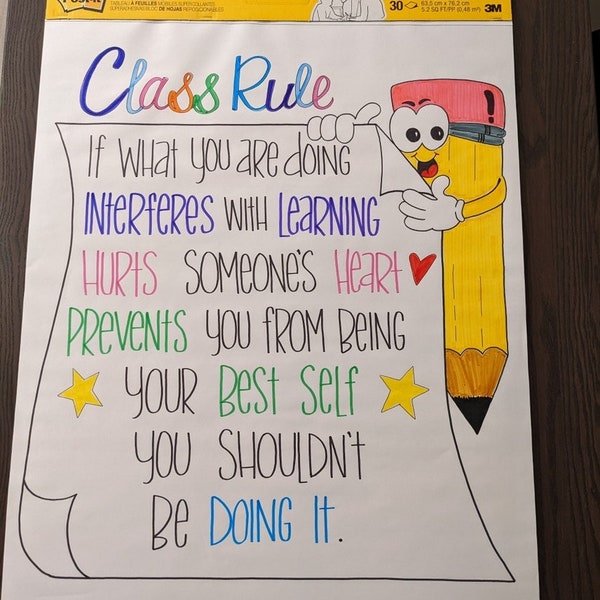 Post-it
30
63,5 cm x 76,2 cm
5.2 SQ FT/PP (0,48 m²)
3M
Class Rule
If what you are doing
Interferes with Learning
Hurts someone's Heart
Prevents you from being
your Best Self
you shouldn't
be Doing It.